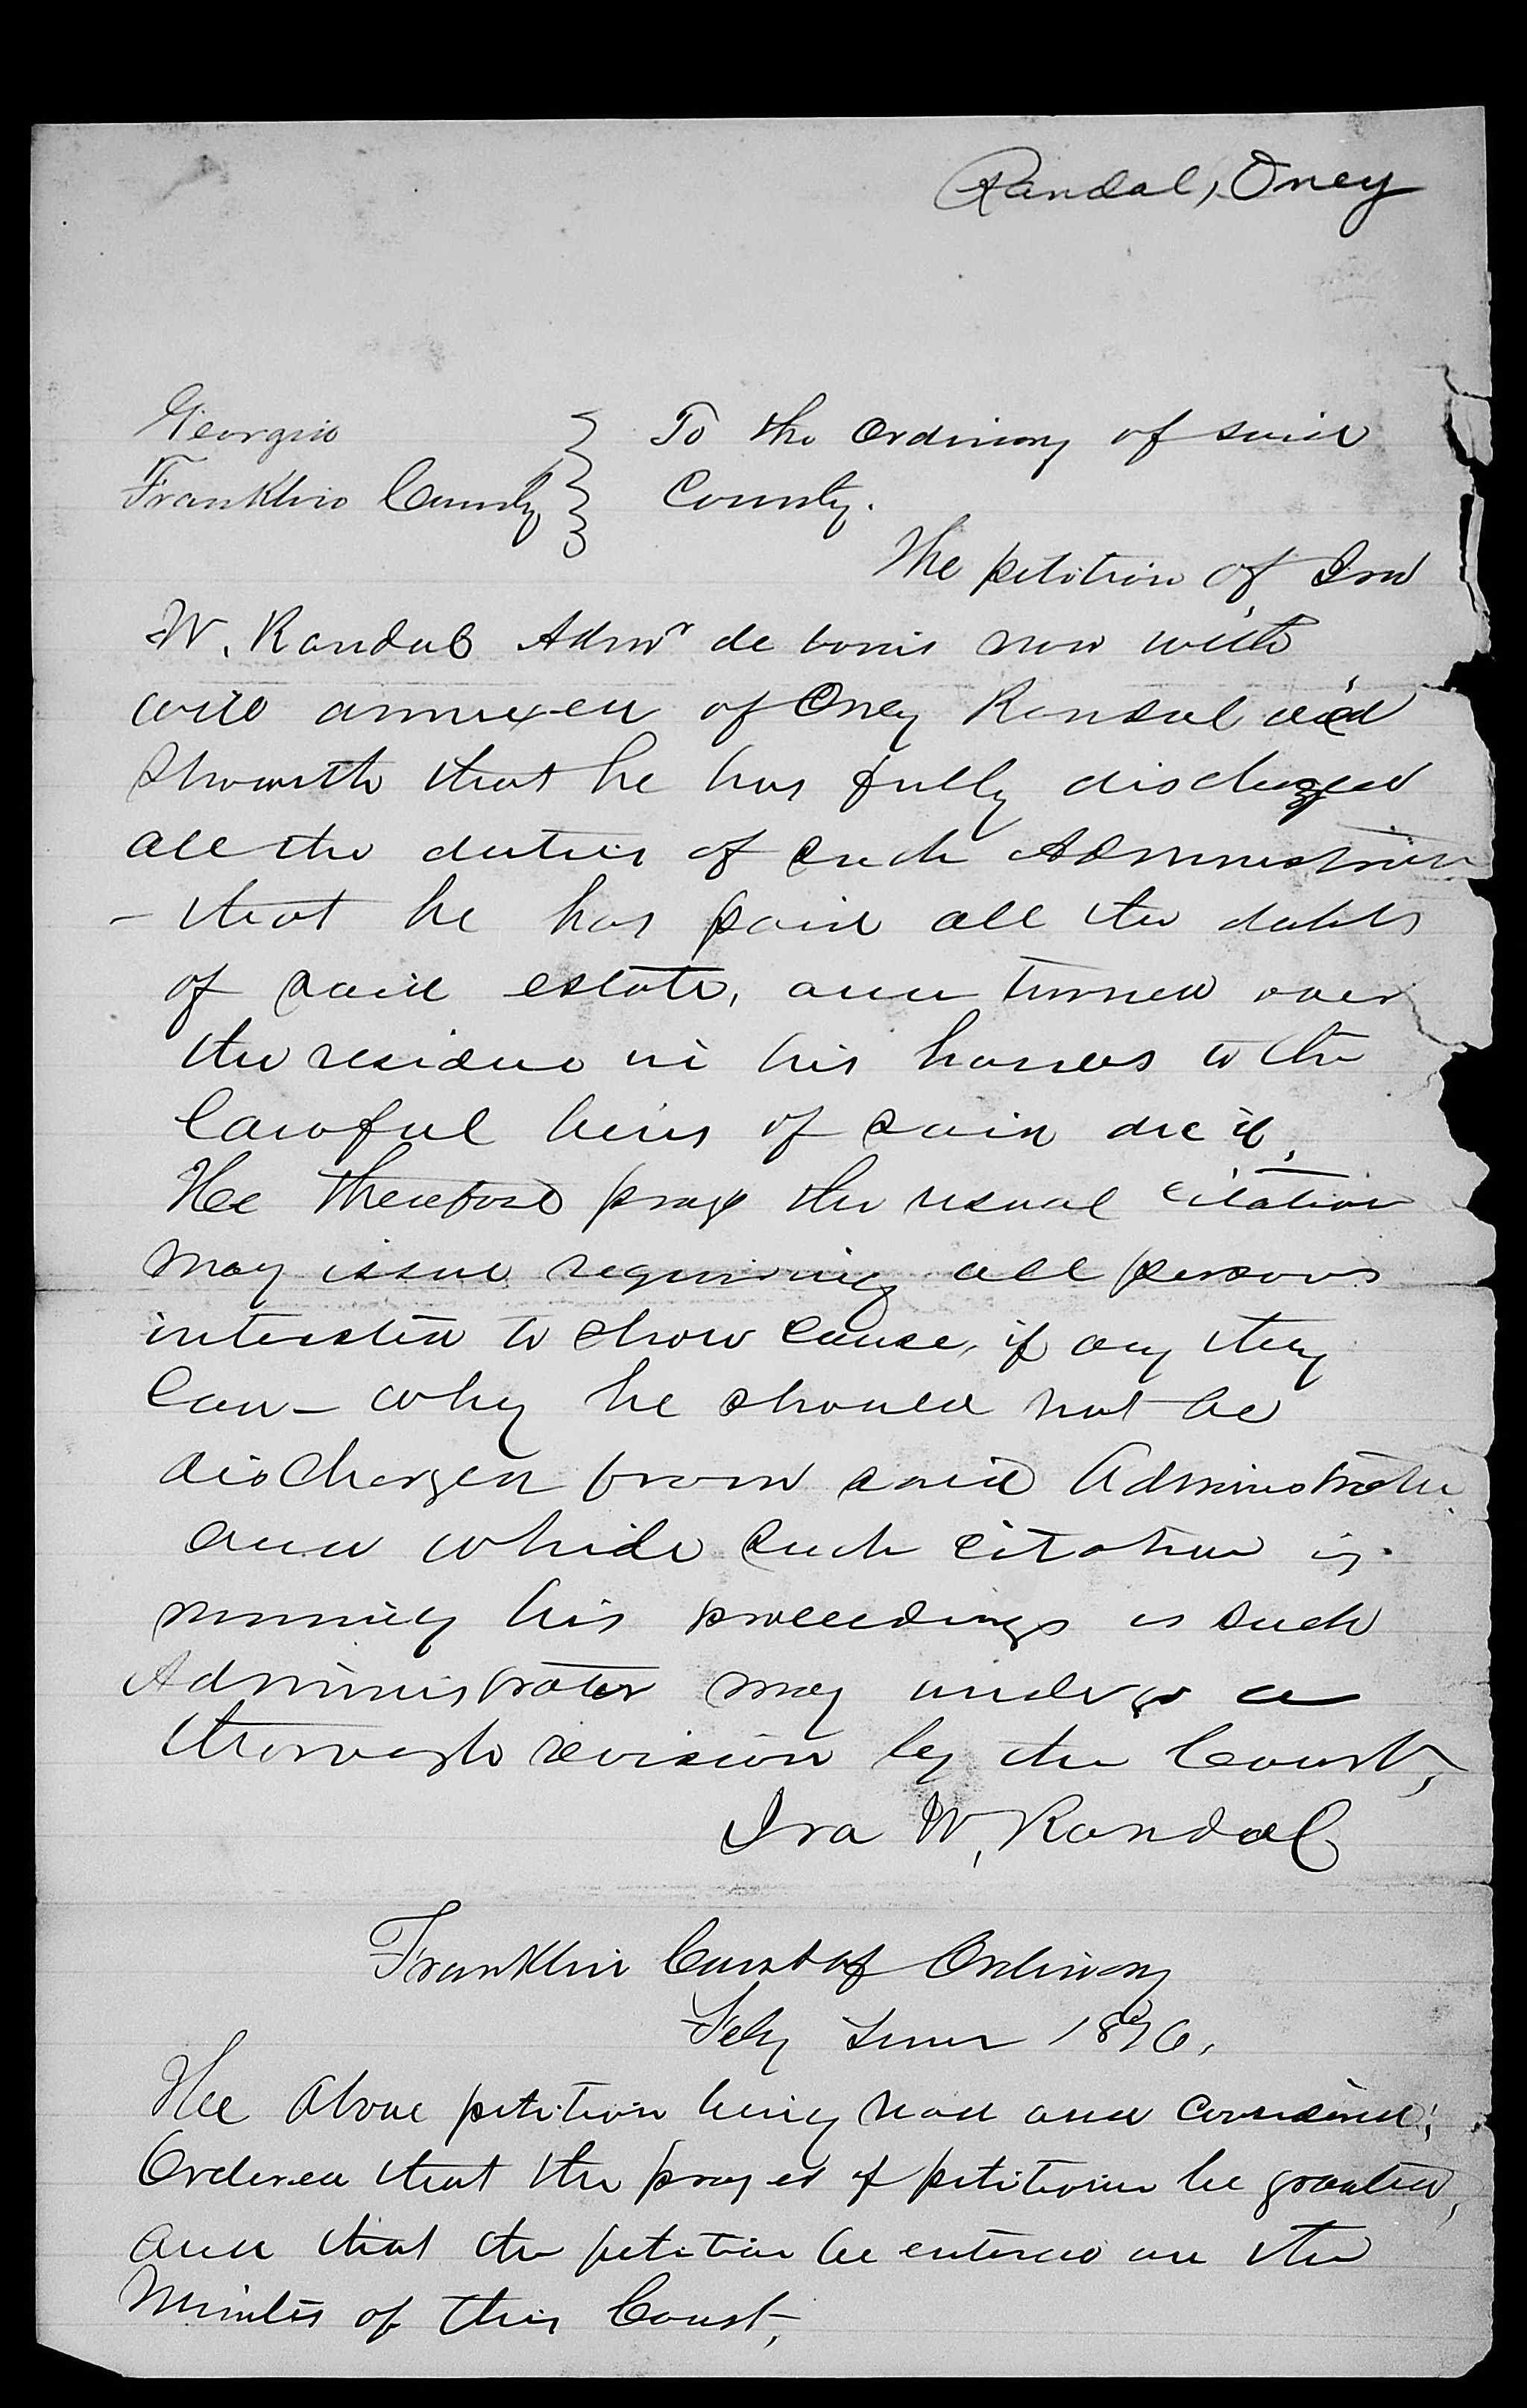 Randal, Oney
Georgia } To the Ordinary of said
Franklin County } County.
The petition of Ira
W. Randal Admr de bonis non with
will annexed of Oney Randal dec'd
Showeth that he has fully discharged
all the duties of such Administration
- that he has paid all the debts
of said estate, and turned over
the residue in his hands to the
lawful heirs of said dec'd,
He therefore prays the usual citation
may issue requiring all persons
interested to show cause, if any they
can - why he should not be
discharged from said Administration
and while such citation is
running his proceedings as such
Administrator may undergo a
thorough revision by the Court,
Ira W, Randal
Franklin Court of Ordinary
Feby Term 1876,
The above petition being read and considered;
Ordered that the prayer of petitioner be granted,
and that the petition be entered on the
Minutes of this Court,